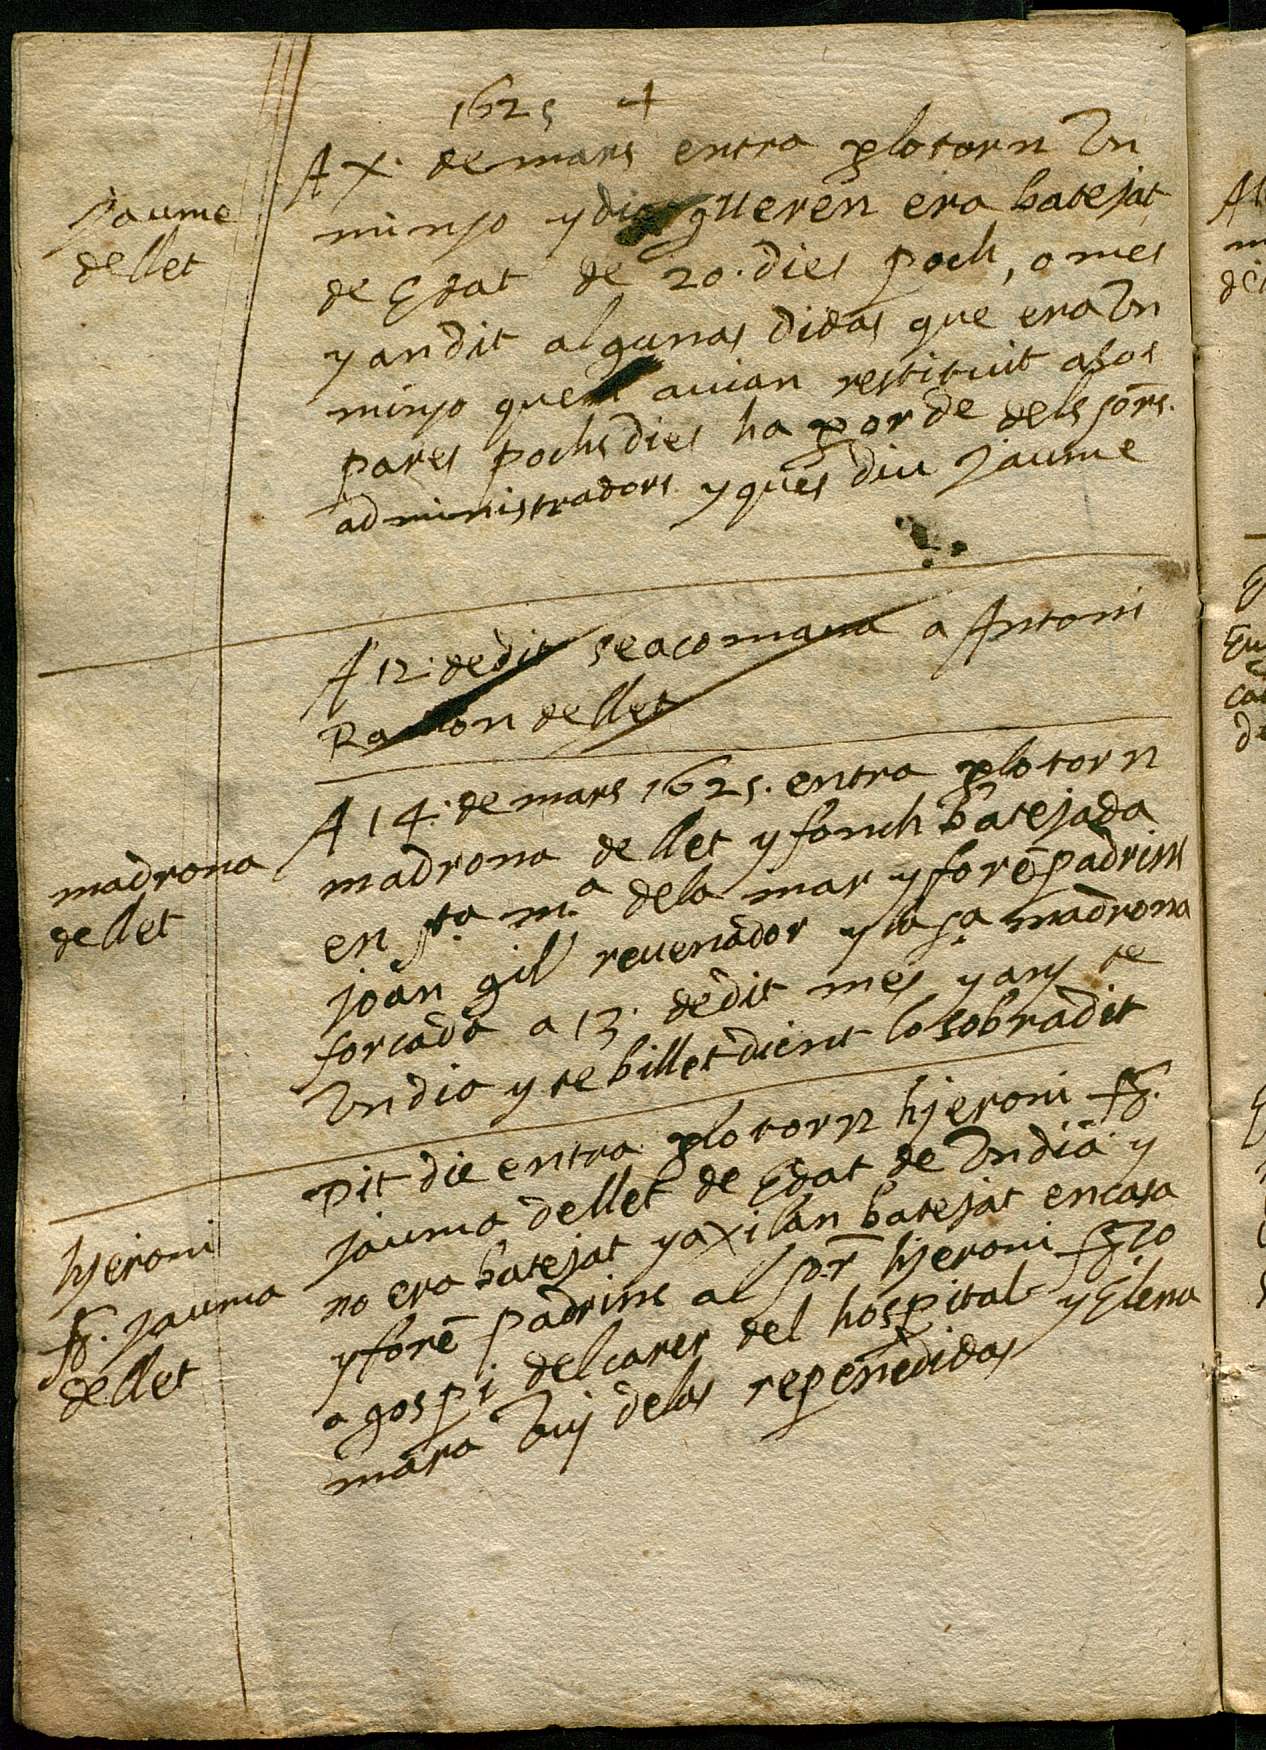 1625 +
jaume
de llet
A X. de mars entra p lo torn Un
minyo y digueren era batejat
de Edat de 20. dies poch, o mes
y an dit algunas didas que era Un
minyo que avian restituit a sos
pares pochs dies ha p orde dels sors.
administradors y ques diu jaume
A 12. de dit se acomana a Antoni
Ramon de llet
madrona
de llet
A 14. de mars 1625. entra p lo torn
madrona de llet y fonch batejada
en sta. ma. dela mar y forē padrins
joan gil revenador y la sa. madrona
forcada a 13. de dit mes y any te
Un dia y te billet dient lo sobradit
hjeroni
fz. jauma
de llet
Dit die entra p lo torn hjeroni fz.
jauma de llet de Edat de Un dia y
no era batejat y axi lan batejat en casa
y forē padrins al sor hjeroni fz lo
agospi del carer del hospital y Elena
mara de las repenedidas